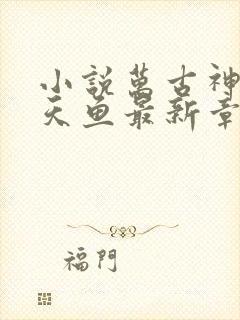 小説萬古神
天魚最新章
福門